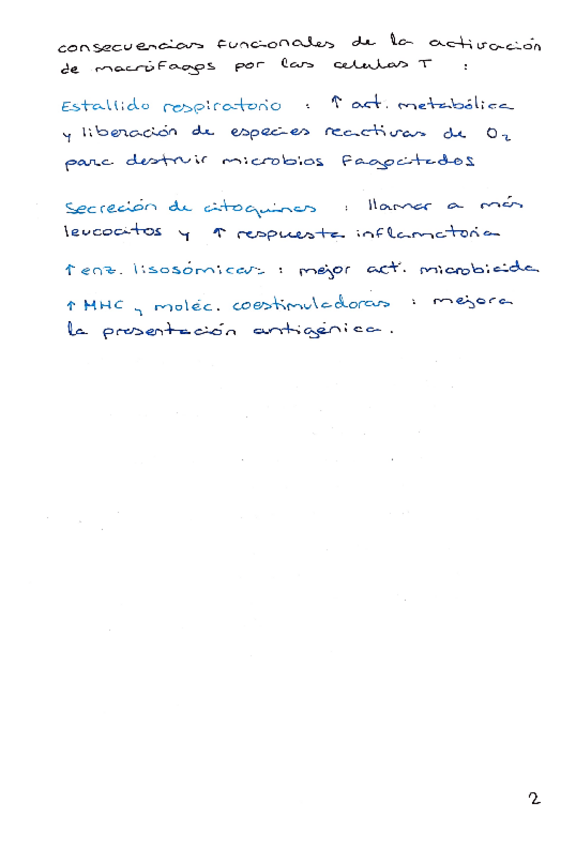 consecuencias funcionales de la activación
de macrófagos por las celulas T :
Estallido respiratorio : ↑ act. metabólica
y liberación de especies reactivas de O₂
para destruir microbios fagocitados
Secreción de citoquinas : llamar a más
leucocitos y ↑ respuesta inflamatoria
↑ enz. lisosómicas : mejor act. microbicida
↑ MHC y moléc. coestimuladoras : mejora
la presentación antigénica.
2